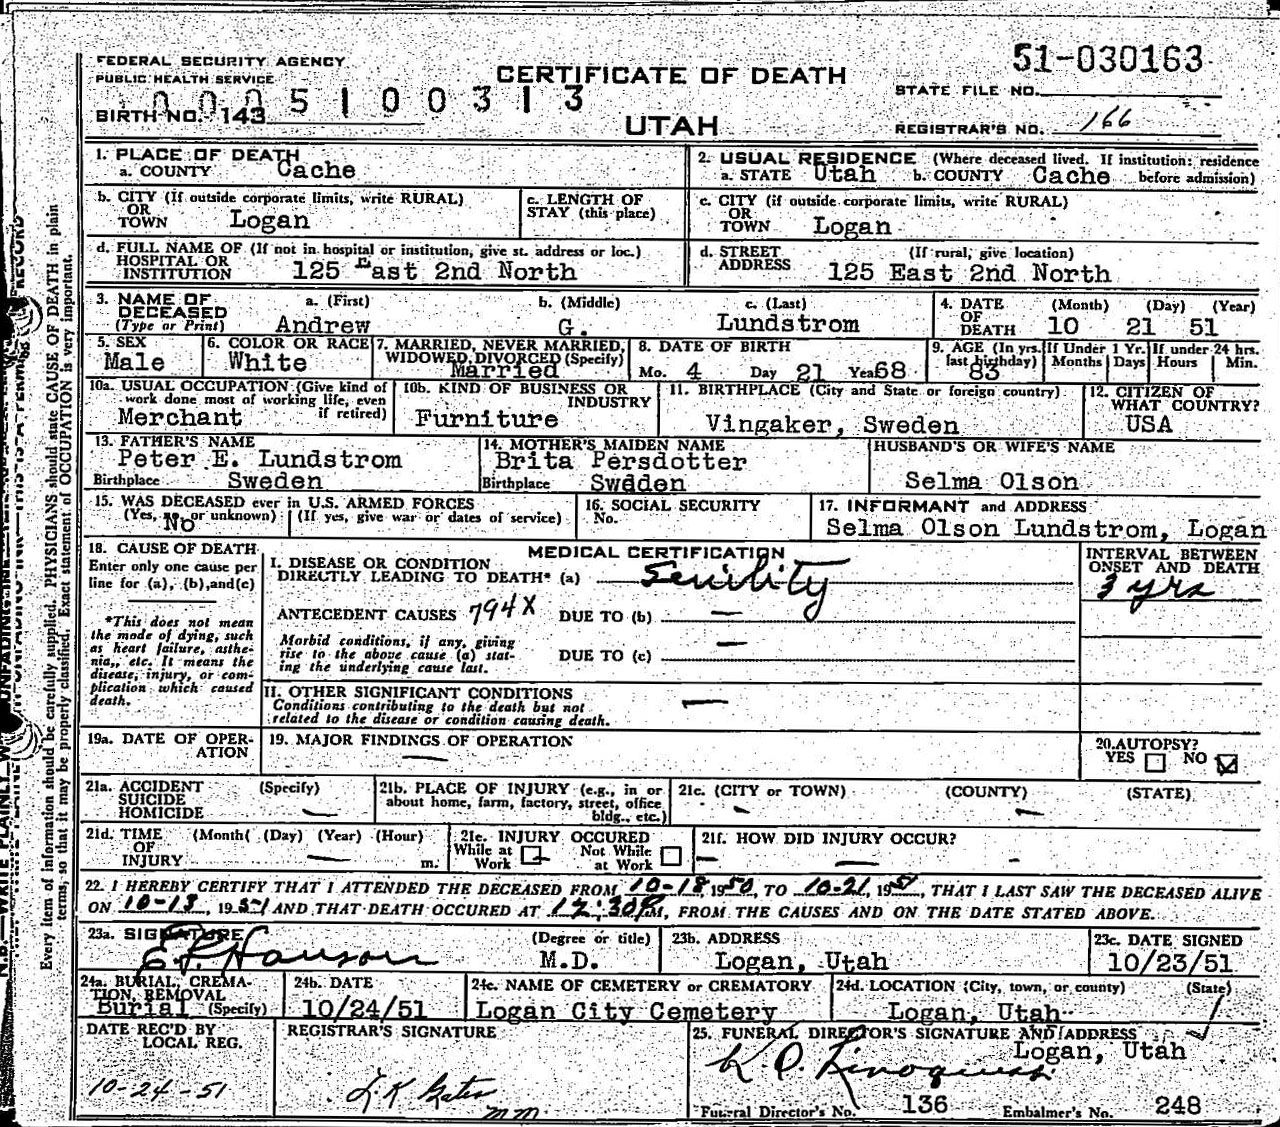 51-030163
FEDERAL SECURITY AGENCY
PUBLIC HEALTH SERVICE
CERTIFICATE OF DEATH
STATE FILE NO.
0005100313
BIRTH NO. 143
UTAH
REGISTRAR'S NO. 166
1. PLACE OF DEATH
a. COUNTY Cache
2. USUAL RESIDENCE (Where deceased lived. If institution: residence
a. STATE Utah b. COUNTY Cache before admission)
b. CITY (If outside corporate limits, write RURAL)
OR
TOWN Logan
c. LENGTH OF
STAY (this place)
c. CITY (if outside corporate limits, write RURAL)
OR
TOWN Logan
d. FULL NAME OF (If not in hospital or institution, give st. address or loc.)
HOSPITAL OR
INSTITUTION 125 East 2nd North
d. STREET (If rural, give location)
ADDRESS 125 East 2nd North
3. NAME OF a. (First) b. (Middle) c. (Last)
DECEASED
(Type or Print) Andrew G. Lundstrom
4. DATE (Month) (Day) (Year)
OF
DEATH 10 21 51
5. SEX
Male
6. COLOR OR RACE
White
7. MARRIED, NEVER MARRIED,
WIDOWED, DIVORCED (Specify)
Married
8. DATE OF BIRTH
Mo. 4 Day 21 Yea 68
9. AGE (In yrs. If Under 1 Yr. If under 24 hrs.
last birthday) Months Days Hours Min.
83
10a. USUAL OCCUPATION (Give kind of
work done most of working life, even
if retired)
Merchant
10b. KIND OF BUSINESS OR
INDUSTRY
Furniture
11. BIRTHPLACE (City and State or foreign country)
Vingaker, Sweden
12. CITIZEN OF
WHAT COUNTRY?
USA
13. FATHER'S NAME
Peter E. Lundstrom
Birthplace Sweden
14. MOTHER'S MAIDEN NAME
Brita Persdotter
Birthplace Sweden
HUSBAND'S OR WIFE'S NAME
Selma Olson
15. WAS DECEASED ever in U.S. ARMED FORCES
(Yes, no, or unknown) (If yes, give war or dates of service)
No
16. SOCIAL SECURITY
No.
17. INFORMANT and ADDRESS
Selma Olson Lundstrom, Logan
18. CAUSE OF DEATH
Enter only one cause per
line for (a), (b), and (c)
*This does not mean
the mode of dying, such
as heart failure, asthe-
nia,, etc. It means the
disease, injury, or com-
plication which caused
death.
MEDICAL CERTIFICATION
I. DISEASE OR CONDITION
DIRECTLY LEADING TO DEATH* (a) Senility
ANTECEDENT CAUSES 794X DUE TO (b) —
Morbid conditions, if any, giving
rise to the above cause (a) stat-
ing the underlying cause last.
DUE TO (c) —
II. OTHER SIGNIFICANT CONDITIONS
Conditions contributing to the death but not
related to the disease or condition causing death. —
INTERVAL BETWEEN
ONSET AND DEATH
3 yrs
19a. DATE OF OPER-
ATION
19. MAJOR FINDINGS OF OPERATION
—
20. AUTOPSY?
YES NO
21a. ACCIDENT (Specify)
SUICIDE
HOMICIDE —
21b. PLACE OF INJURY (e.g., in or
about home, farm, factory, street, office
bldg., etc.)
21c. (CITY or TOWN) (COUNTY) (STATE)
- —
21d. TIME (Month) (Day) (Year) (Hour)
OF
INJURY — m.
21e. INJURY OCCURED
While at Not While
Work at Work
21f. HOW DID INJURY OCCUR?
— — -
22. I HEREBY CERTIFY THAT I ATTENDED THE DECEASED FROM 10-18 1950, TO 10-21, 1951, THAT I LAST SAW THE DECEASED ALIVE
ON 10-13, 1951 AND THAT DEATH OCCURED AT 12:30PM, FROM THE CAUSES AND ON THE DATE STATED ABOVE.
23a. SIGNATURE (Degree or title)
M.D.
23b. ADDRESS
Logan, Utah
23c. DATE SIGNED
10/23/51
24a. BURIAL, CREMA-
TION, REMOVAL
Burial (Specify)
24b. DATE
10/24/51
24c. NAME OF CEMETERY or CREMATORY
Logan City Cemetery
24d. LOCATION (City, town, or county) (State)
Logan, Utah
DATE REC'D BY
LOCAL REG.
10-24-51
REGISTRAR'S SIGNATURE
mm
25. FUNERAL DIRECTOR'S SIGNATURE AND ADDRESS
Logan, Utah
Funeral Director's No. 136 Embalmer's No. 248
Every item of information should be carefully supplied. PHYSICIANS should state CAUSE OF DEATH in plain
terms, so that it may be properly classified. Exact statement of OCCUPATION is very important.